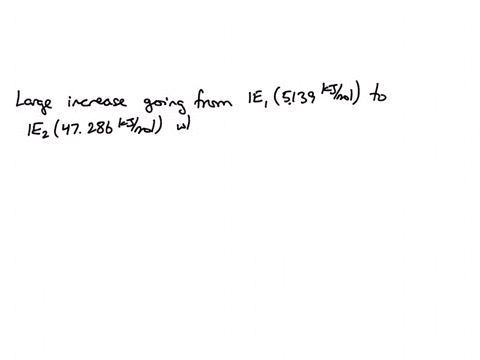 Large increase going from IE₁ (5.139 kJ/mol) to
IE₂ (47.286 kJ/mol) w/